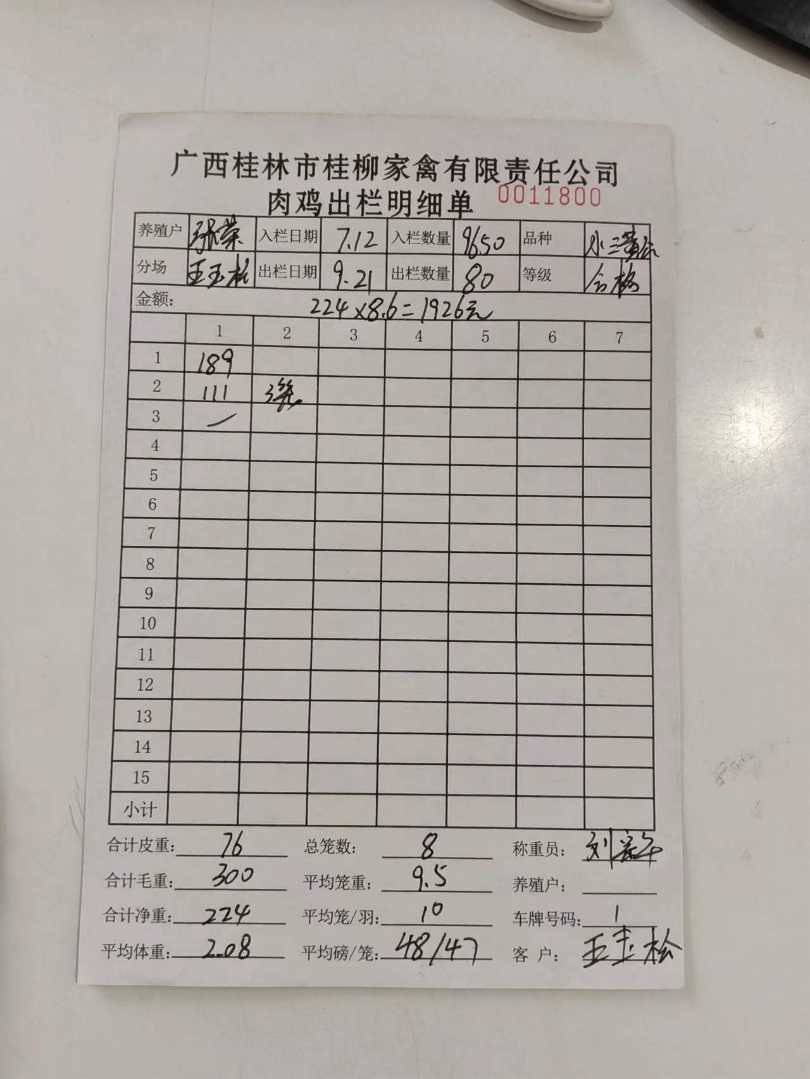 广西桂林市桂柳家禽有限责任公司
肉鸡出栏明细单 0011800
养殖户 张荣 入栏日期 7.12 入栏数量 9650 品种
分场 王玉松 出栏日期 9.21 出栏数量 80 等级 合格
金额: 224×8.6=1926元
1 2 3 4 5 6 7
1 189
2 111
3
4
5
6
7
8
9
10
11
12
13
14
15
小计
合计皮重: 76 总笼数: 8 称重员:
合计毛重: 300 平均笼重: 9.5 养殖户:
合计净重: 224 平均笼/羽: 10 车牌号码:
平均体重: 2.08 平均磅/笼: 48/47 客 户: 王玉松